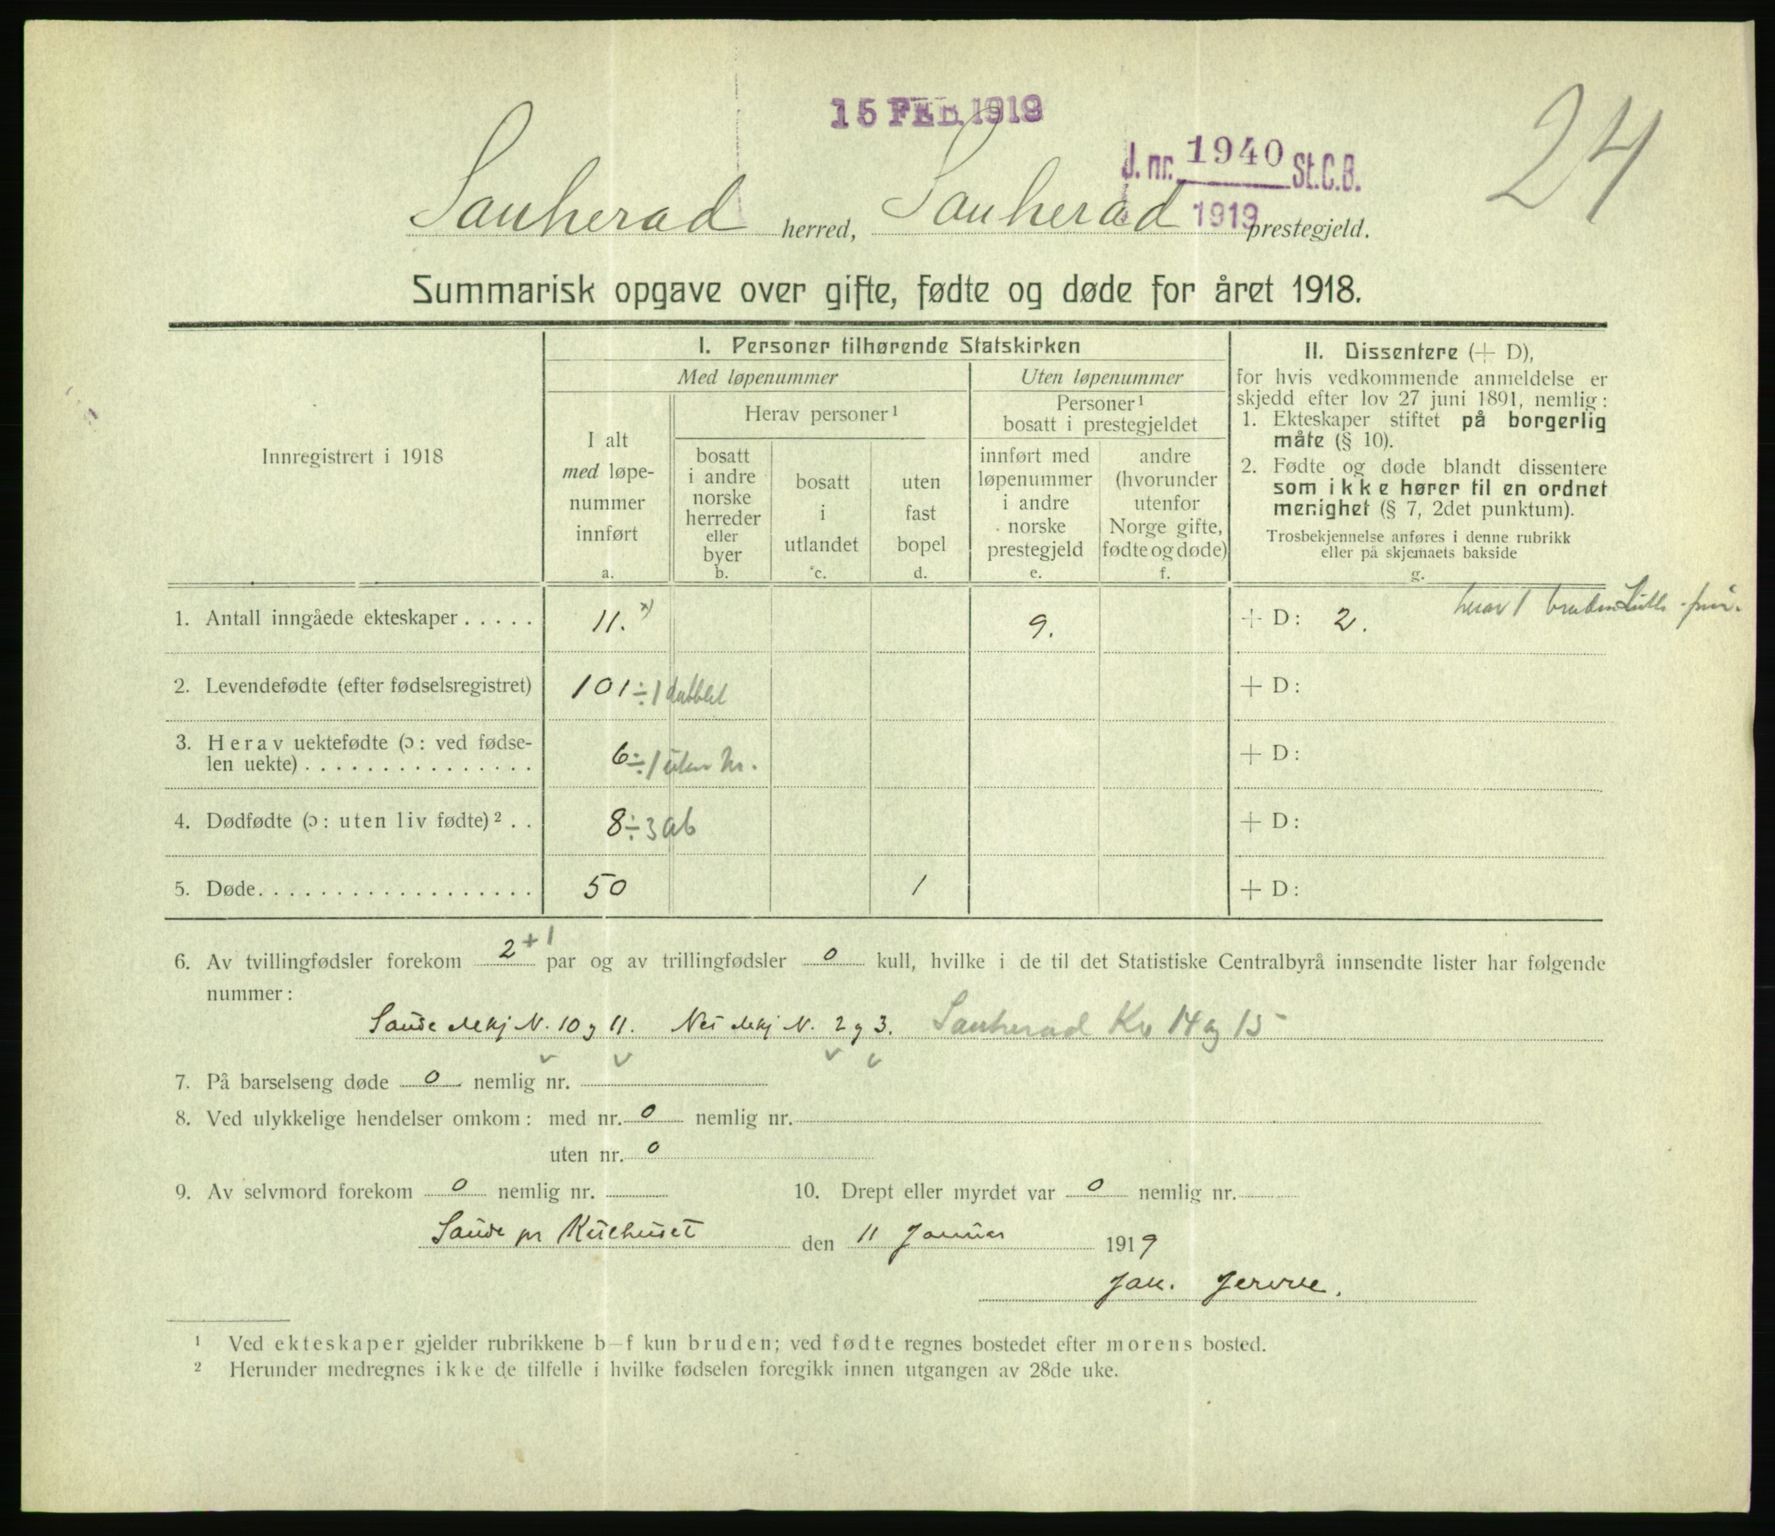 15 FEB. 1919
J. nr. 1940 St.C.B.
1919
24
Sauherad herred, Sauherad prestegjeld.
Summarisk opgave over gifte, fødte og døde for året 1918.
Innregistrert i 1918
I. Personer tilhørende Statskirken
Med løpenummer
Uten løpenummer
I alt
med løpe-
nummer
innført
a.
Herav personer¹
bosatt
i andre
norske
herreder
eller
byer
b.
bosatt
i
utlandet
c.
uten
fast
bopel
d.
Personer¹
bosatt i prestegjeldet
innført med
løpenummer
i andre
norske
prestegjeld
e.
andre
(hvorunder
utenfor
Norge gifte,
fødte og døde)
f.
II. Dissentere (+ D),
for hvis vedkommende anmeldelse er
skjedd efter lov 27 juni 1891, nemlig:
1. Ekteskaper stiftet på borgerlig
måte (§ 10).
2. Fødte og døde blandt dissentere
som ikke hører til en ordnet
menighet (§ 7, 2det punktum).
Trosbekjennelse anføres i denne rubrikk
eller på skjemaets bakside
g.
1. Antall inngåede ekteskaper . . . . . 11. *) 9. + D: 2. herav 1
2. Levendefødte (efter fødselsregistret) 101 ÷ 1 dubblet + D:
3. Herav uektefødte (ɔ: ved fødse-
len uekte) . . . . . . . . . . . . . . . 6 ÷ 1 uten nr. + D:
4. Dødfødte (ɔ: uten liv fødte)² . . 8 ÷ 3 ab + D:
5. Døde. . . . . . . . . . . . . . . . . . 50 1 + D:
6. Av tvillingfødsler forekom 2 + 1 par og av trillingfødsler 0 kull, hvilke i de til det Statistiske Centralbyrå innsendte lister har følgende
nummer:
Saude Mkj N. 10 og 11. Nes Mkj N. 2 og 3. Sauherad Kv 14 og 15
7. På barselseng døde 0 nemlig nr.
8. Ved ulykkelige hendelser omkom: med nr. 0 nemlig nr.
uten nr. 0
9. Av selvmord forekom 0 nemlig nr. 10. Drept eller myrdet var 0 nemlig nr.
Saude pr den 11 Januar 1919
Jak.
¹ Ved ekteskaper gjelder rubrikkene b–f kun bruden; ved fødte regnes bostedet efter morens bosted.
² Herunder medregnes ikke de tilfelle i hvilke fødselen foregikk innen utgangen av 28de uke.